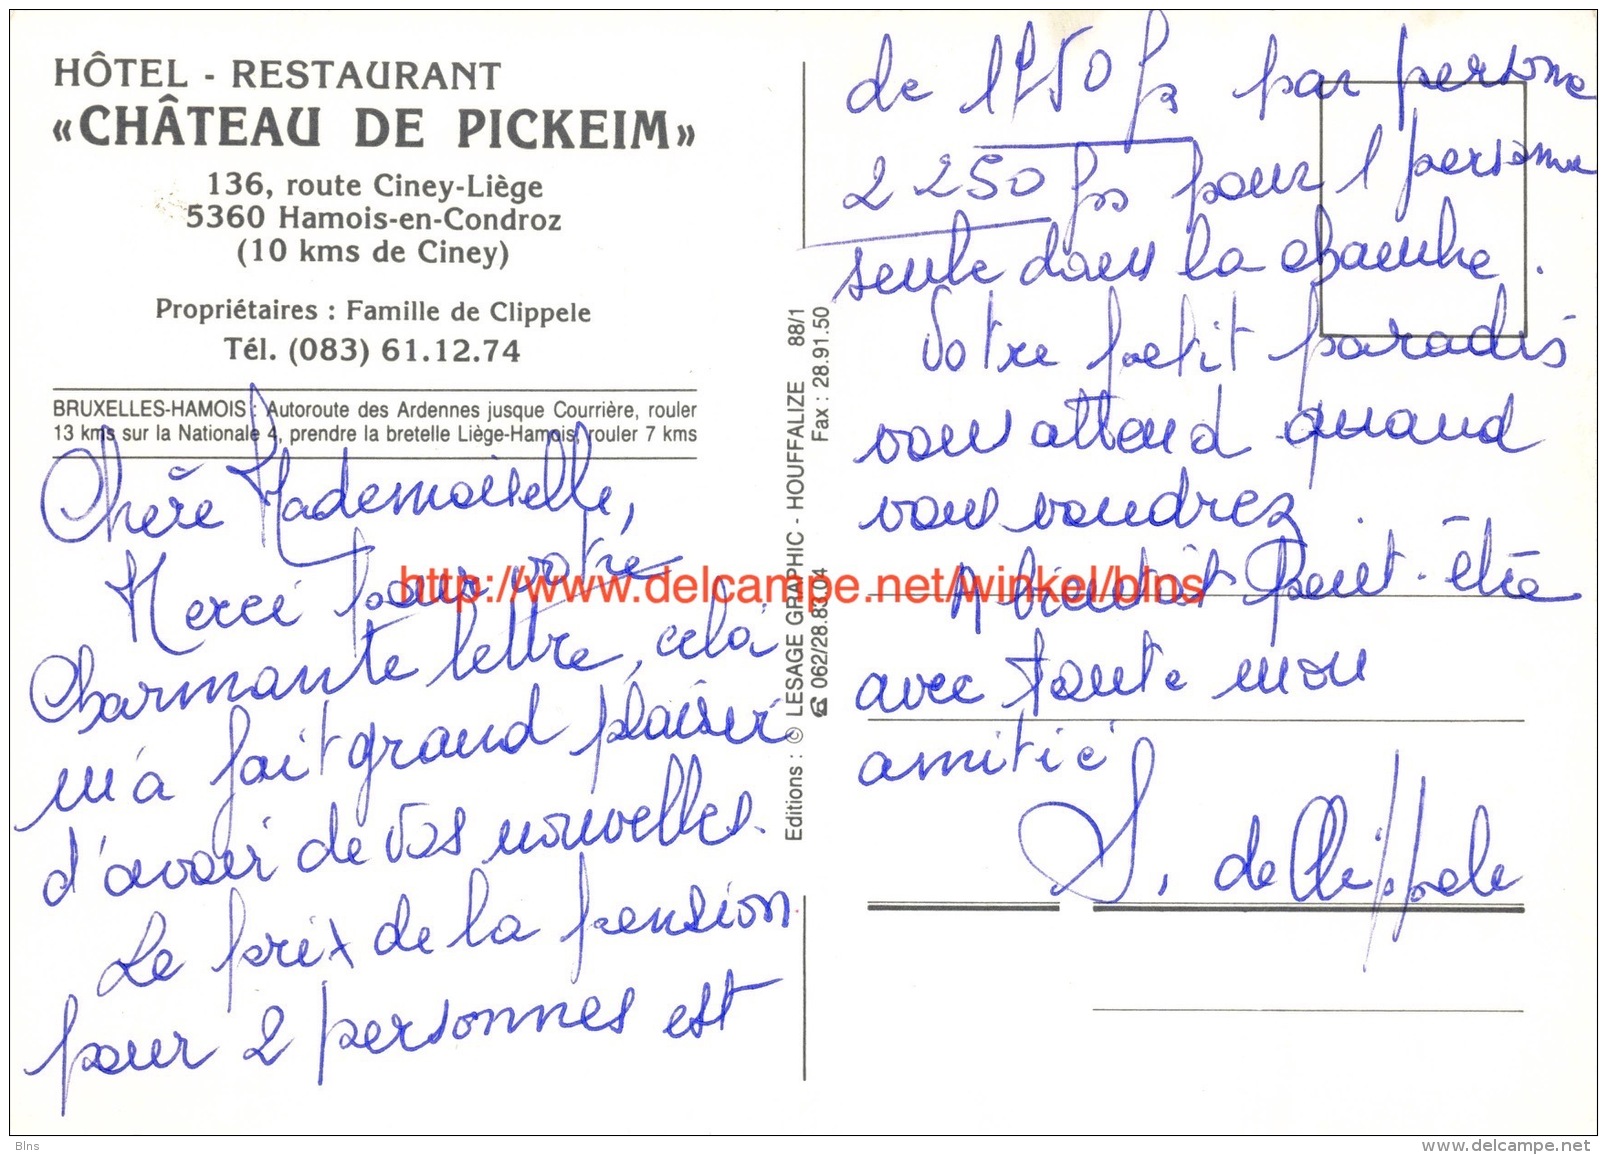 HÔTEL - RESTAURANT
«CHÂTEAU DE PICKEIM»
136, route Ciney-Liège
5360 Hamois-en-Condroz
(10 kms de Ciney)
Propriétaires : Famille de Clippele
Tél. (083) 61.12.74
BRUXELLES-HAMOIS : Autoroute des Ardennes jusque Courrière, rouler
13 kms sur la Nationale 4, prendre la bretelle Liège-Hamois, rouler 7 kms
Chère Mademoiselle,
Merci pour votre
charmante lettre, celà
m'a fait grand plaisir
d'avoir de vos nouvelles.
Le prix de la pension
pour 2 personnes est
Editions : © LESAGE GRAPHIC - HOUFFALIZE 88/1
☎ 062/28.83.04 Fax : 28.91.50
de 1950 frs par personne
2250 frs pour 1 personne
seule dans la chambre.
Votre petit paradis
vous attend quand
vous voudrez
A bientôt peut-être
avec toute mon
amitié
S. de Clippele
http://www.delcampe.net/winkel/blns
Blns
www.delcampe.net